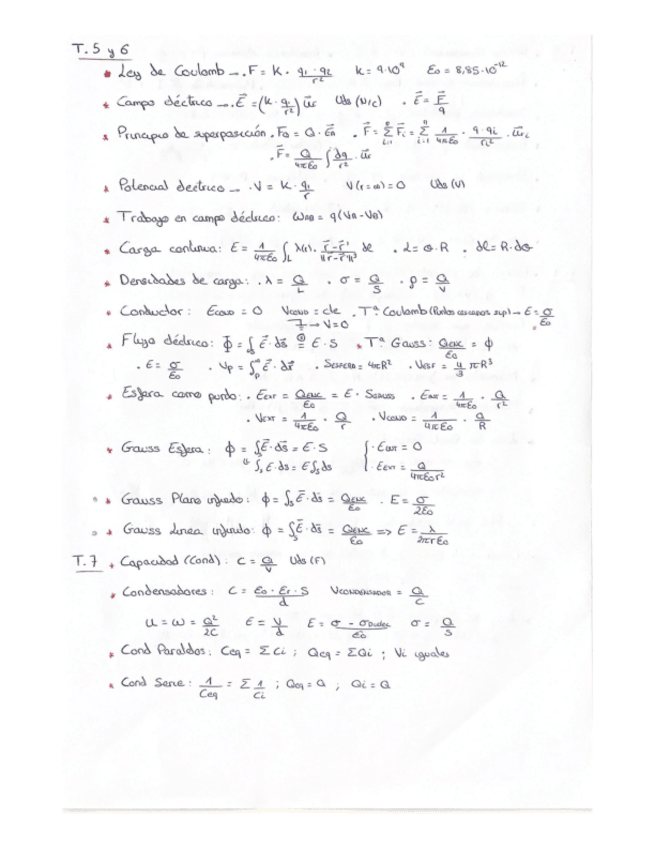 T.5 y 6
* Ley de Coulomb → . F = K · q₁·q₂/r²   K = 9·10⁹   ε₀ = 8,85·10⁻¹²
* Campo eléctrico → . E⃗ = (k · q₁/r²) u⃗r   Uds (N/C)   . E⃗ = F⃗/q
* Principio de superposición . F₀ = Q · E⃗   . F⃗ = Σ F⃗i = Σ 1/4πε₀ · q·qi/ri² · u⃗ri
. F⃗ = Q/4πε₀ ∫ dq/r² · u⃗r
* Potencial electrico → . V = K · q₁/r   V(r=∞) = 0   Uds (V)
* Trabajo en campo eléctrico: WAB = q(VA - VB)
* Carga continua: E = 1/4πε₀ ∫L λ(r) · r⃗-r⃗'/||r-r'||³ dl   . L = θ·R   . dl = R·dθ
* Densidades de carga: . λ = Q/L   . σ = Q/S   . ρ = Q/V
* Conductor: Econd = 0   Vcond = cte . Tª Coulomb (Puntos cercanos sup) → E = σ/ε₀
→ V=0
* Flujo eléctrico: Φ = ∫s E⃗·ds⃗ = E·S   * Tª Gauss: Qenc/ε₀ = ϕ
. E = σ/ε₀   . Vp = ∫p^∞ E⃗·dr⃗   . SESFERA = 4πR²   . VESF = 4/3 πR³
* Esfera como punto: . Eext = Qenc/ε₀ = E·SGAUSS . Eext = 1/4πε₀ · Q/r²
. Vext = 1/4πε₀ · Q/r   . Vcond = 1/4πε₀ · Q/R
* Gauss Esfera: ϕ = ∫s E⃗·ds⃗ = E·S   { · Eint = 0
∫s E·ds = E∫s ds   · Eext = Q/4πε₀r²
* Gauss Plano infinito: ϕ = ∫s E⃗·ds = Qenc/ε₀ . E = σ/2ε₀
* Gauss Linea infinito: ϕ = ∫s E⃗·ds = Qenc/ε₀ => E = λ/2πrε₀
T.7 * Capacidad (Cond): C = Q/V   Uds (F)
* Condensadores: C = ε₀·εr·S/d   VCONDENSADOR = Q/C
U = W = Q²/2C   E = V/d   E = σ - σ/ε₀   σ = Q/S
* Cond Paralelos: Ceq = ΣCi ; Qeq = ΣQi ; Vi iguales
* Cond Serie: 1/Ceq = Σ 1/Ci ; Qeq = Q ; Qi = Q